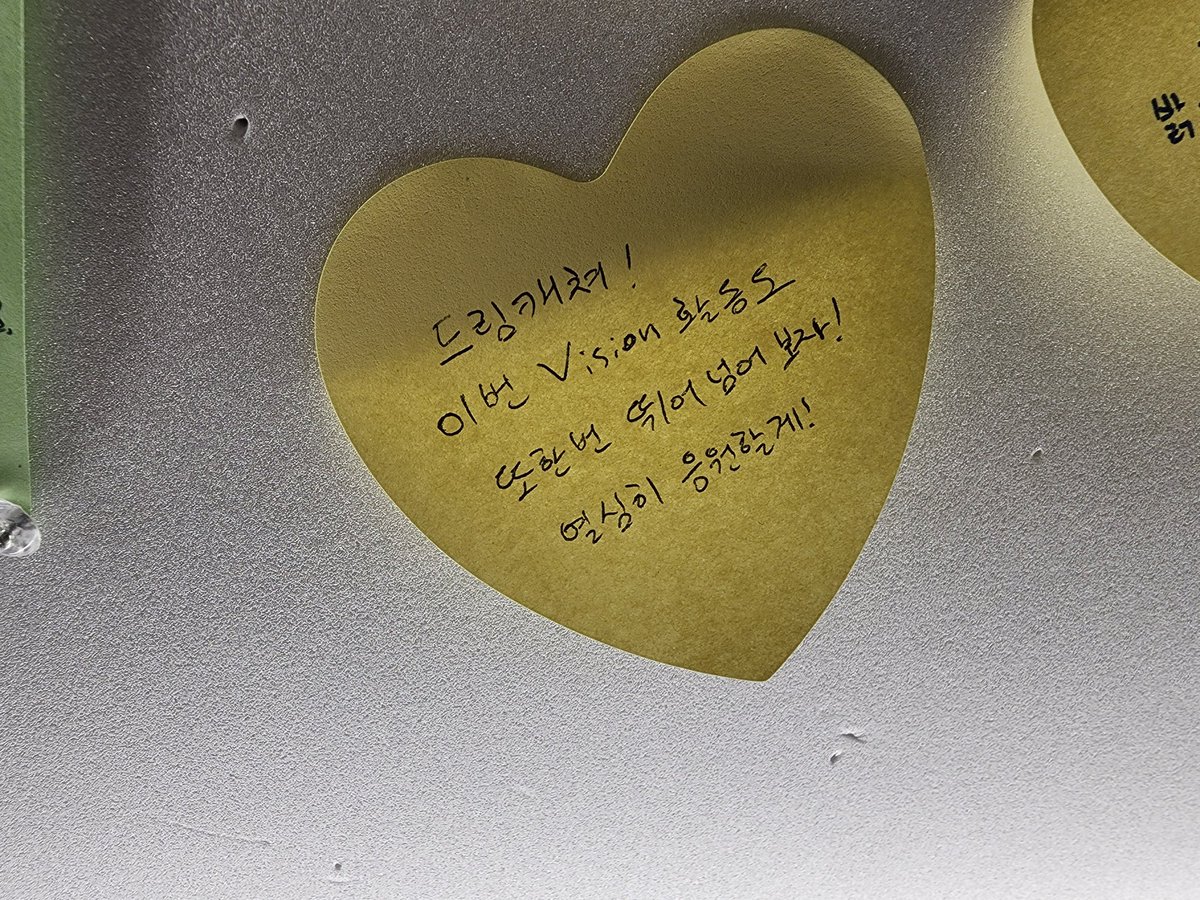 드림캐쳐!
이번 Vision 활동도
또한번 뛰어넘어보자!
열심히 응원할게!